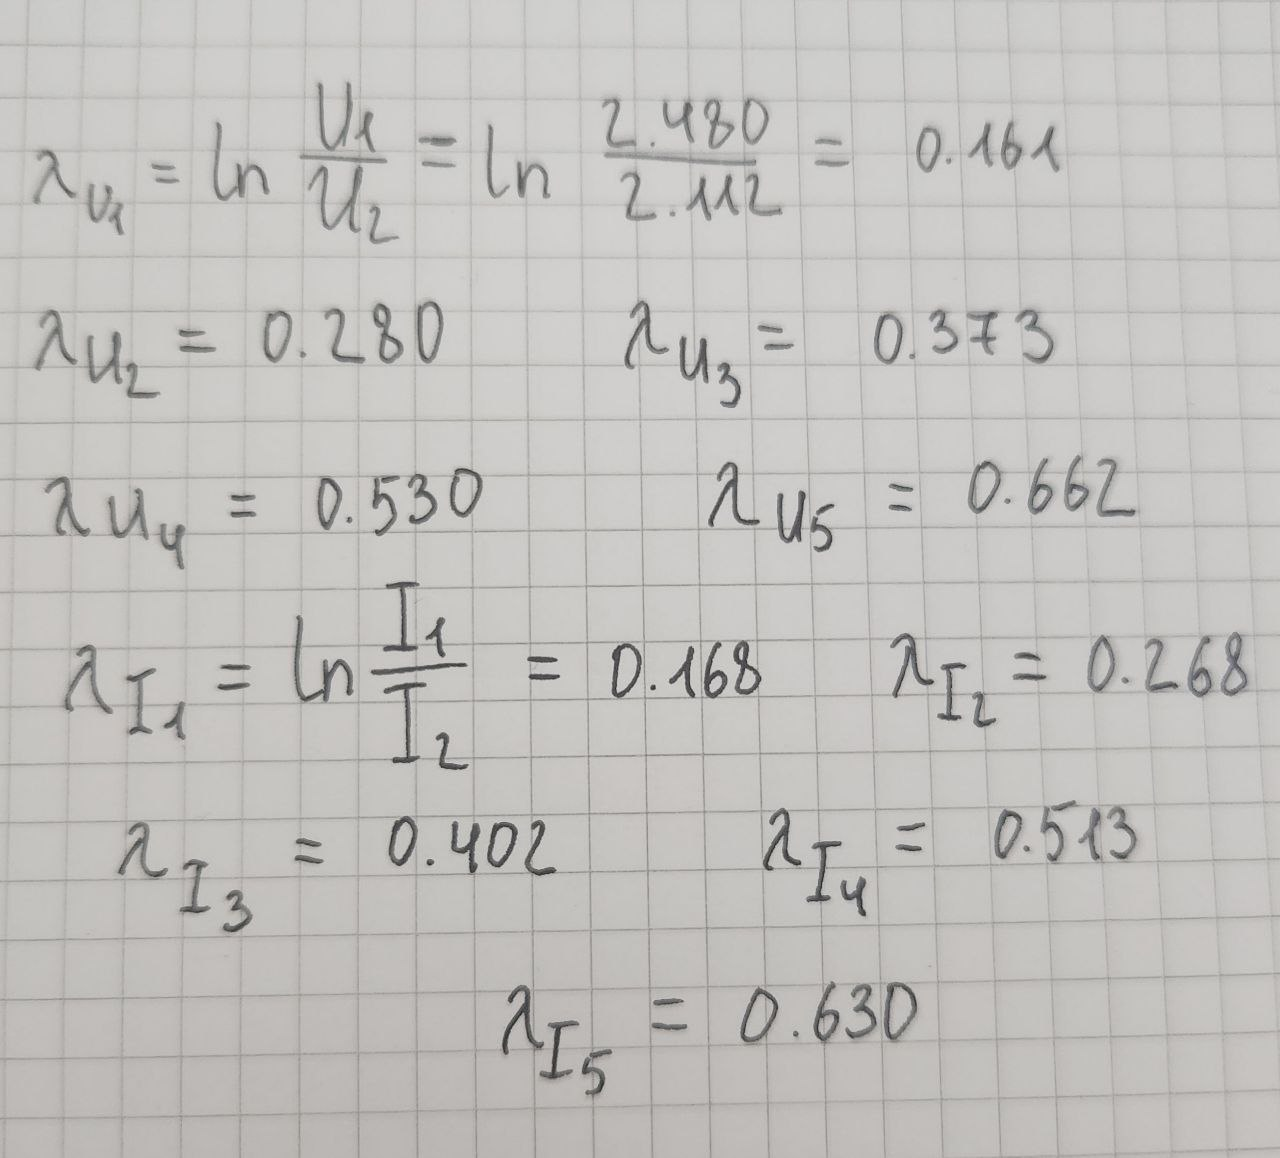 λ_U₁ = ln U₁/U₂ = ln 2.480/2.112 = 0.161
λ_U₂ = 0.280 λ_U₃ = 0.373
λ_U₄ = 0.530 λ_U₅ = 0.662
λ_I₁ = ln I₁/I₂ = 0.168 λ_I₂ = 0.268
λ_I₃ = 0.402 λ_I₄ = 0.513
λ_I₅ = 0.630